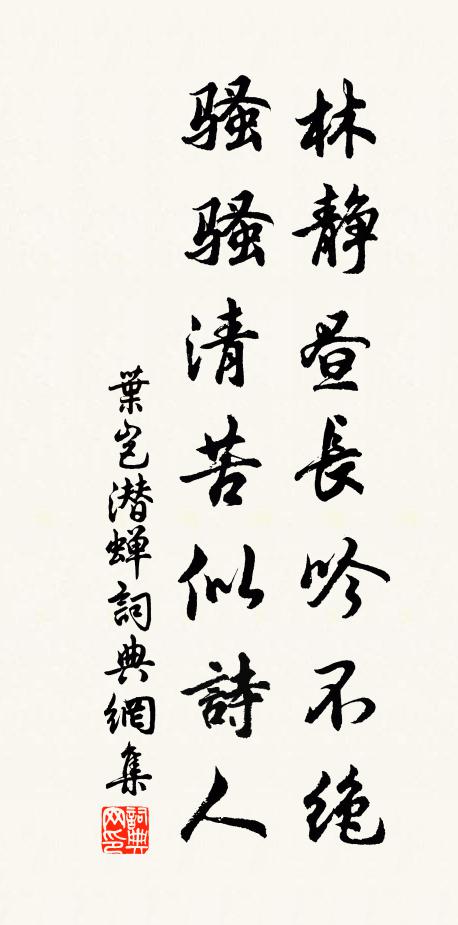 林静昼長吟不绝
騷騷清苦似詩人
葉岂潜蝉詞典網集
詞典网印